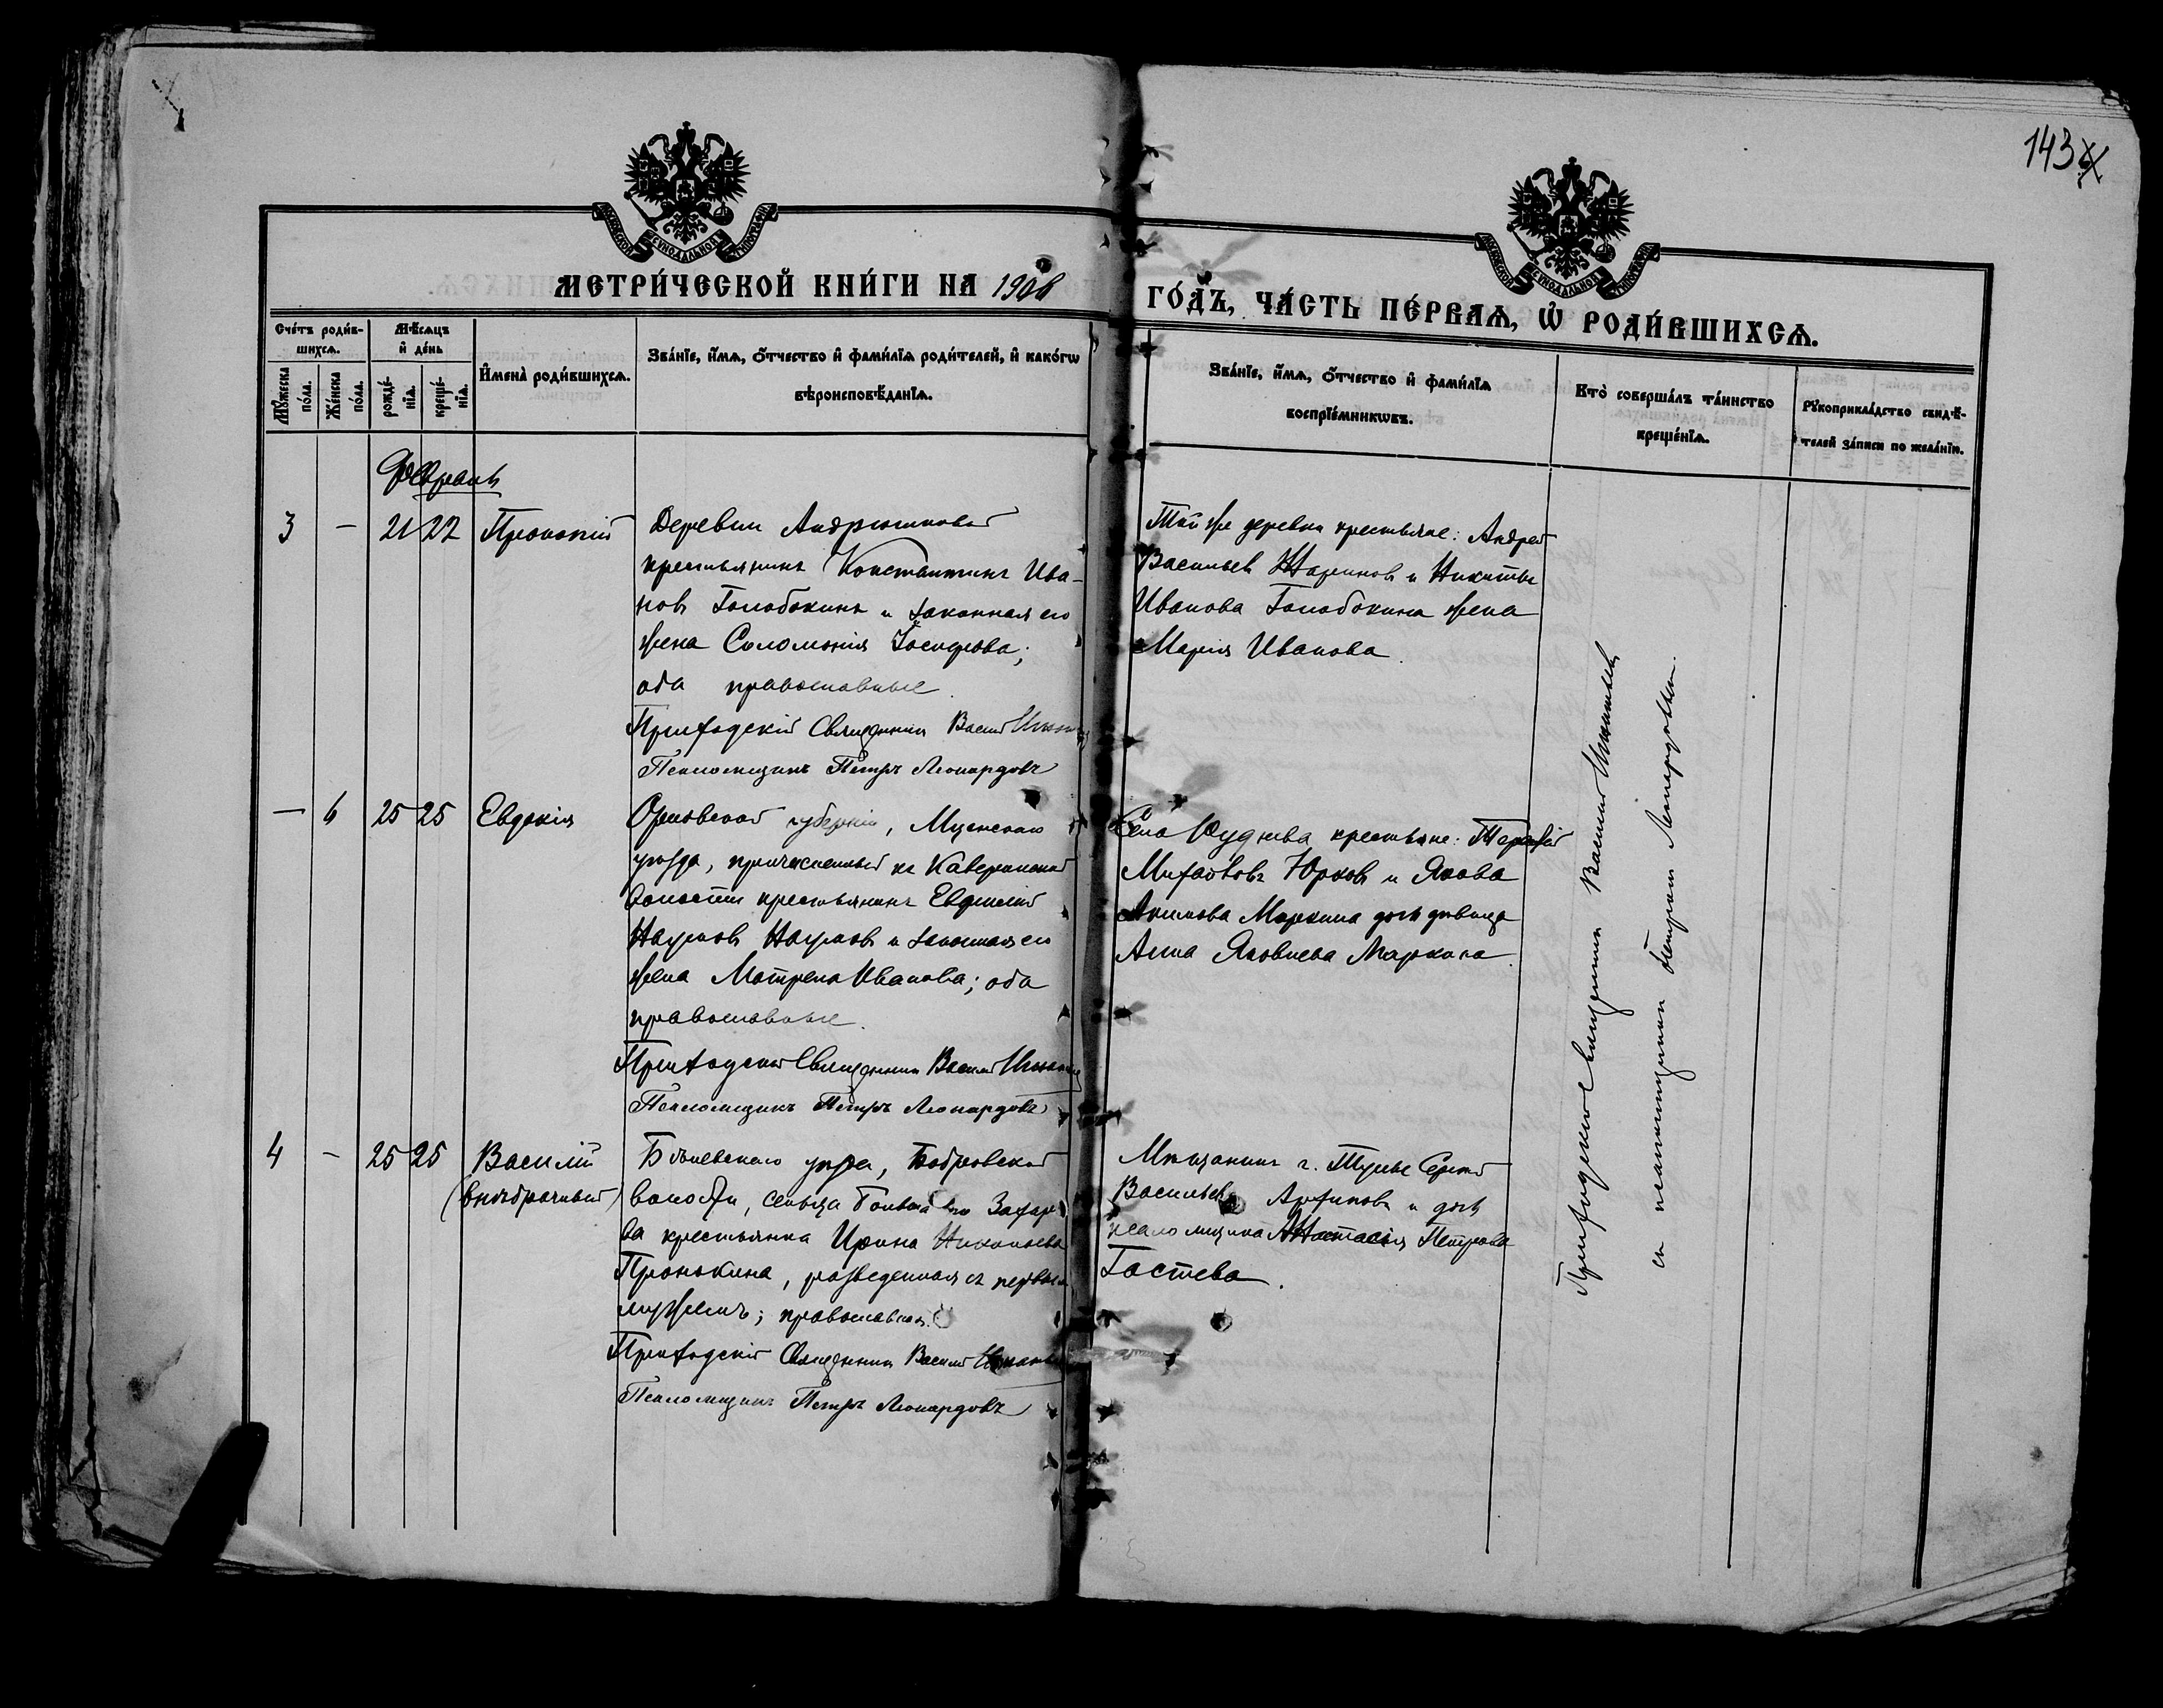 143
МЕТРИ́ЧЕСКОЙ КНИ́ГИ НА 1908
ГО́ДЪ, ЧА́СТЬ ПЕ́РВАѦ, Ѡ҆ РОДИ́ВШИХСѦ.
Сче́тъ роди́в-
шихсѧ.
Мѣ́сѧцъ
и҆ де́нь
Мꙋ́жеска
по́ла.
Же́нска
по́ла.
рожде́-
нїѧ.
креще́-
нїѧ.
И҆мена̀ роди́вшихсѧ.
Зва́нїе, и҆́мѧ, ѻ҆́тчество и҆ фами́лїѧ роди́телей, и҆ како́гѡ
вѣроисповѣ́данїѧ.
Зва́нїе, и҆́мѧ, ѻ҆́тчество и҆ фами́лїѧ
воспрїе́мникѡвъ.
Кто̀ соверша́лъ та́инство
креще́нїѧ.
Рꙋкоприкла́дство свидѣ́-
телей за́писи по жела́нїю.
Февраль
3 – 21 22 Прокопій
Деревни Андрюшковой
крестьянинъ Константинъ Ива-
новъ Голобокинъ и законная его
жена Соломонія Іосифова;
оба православные.
Приходскій Священникъ Василій
Псаломщикъ Петръ Леонардовъ
Той же деревни крестьяне: Андрей
Васильевъ и Никиты
Иванова Голобокина жена
Марія Иванова.
– 6 25 25 Евдокія
Орловской губерніи, Мценскаго
уѣзда, причисленный къ
волости крестьянинъ
Наумовъ Наумовъ и законная его
жена Матрена Иванова; оба
православные.
Приходскій Священникъ Василій
Псаломщикъ Петръ Леонардовъ
Села крестьяне:
Михайловъ Юрковъ и Якова
Акимова Маркина дочь дѣвица
Анна Яковлева Маркина.
4 – 25 25 Василій
(внѣбрачный)
Бѣлевскаго уѣзда, Бобровской
волости, сельца Захаро-
ва крестьянка Ирина Николаева
Пронькина, разведенная съ первымъ
мужемъ; православная.
Приходскій Священникъ Василій
Псаломщикъ Петръ Леонардовъ
Мѣщанинъ г. Тулы Сергѣй
Васильевъ Архиповъ и дочь
псаломщика Анастасія Петрова
Гостева.
Приходскій Священникъ Василій
съ псаломщикомъ Петромъ Леонардовымъ.